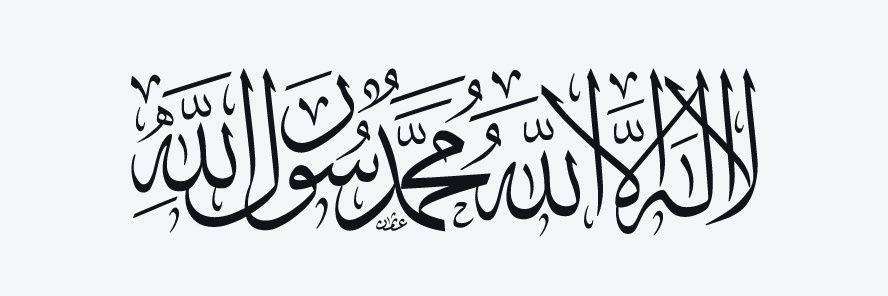 لا إله إلا الله محمد رسول الله
عثمان